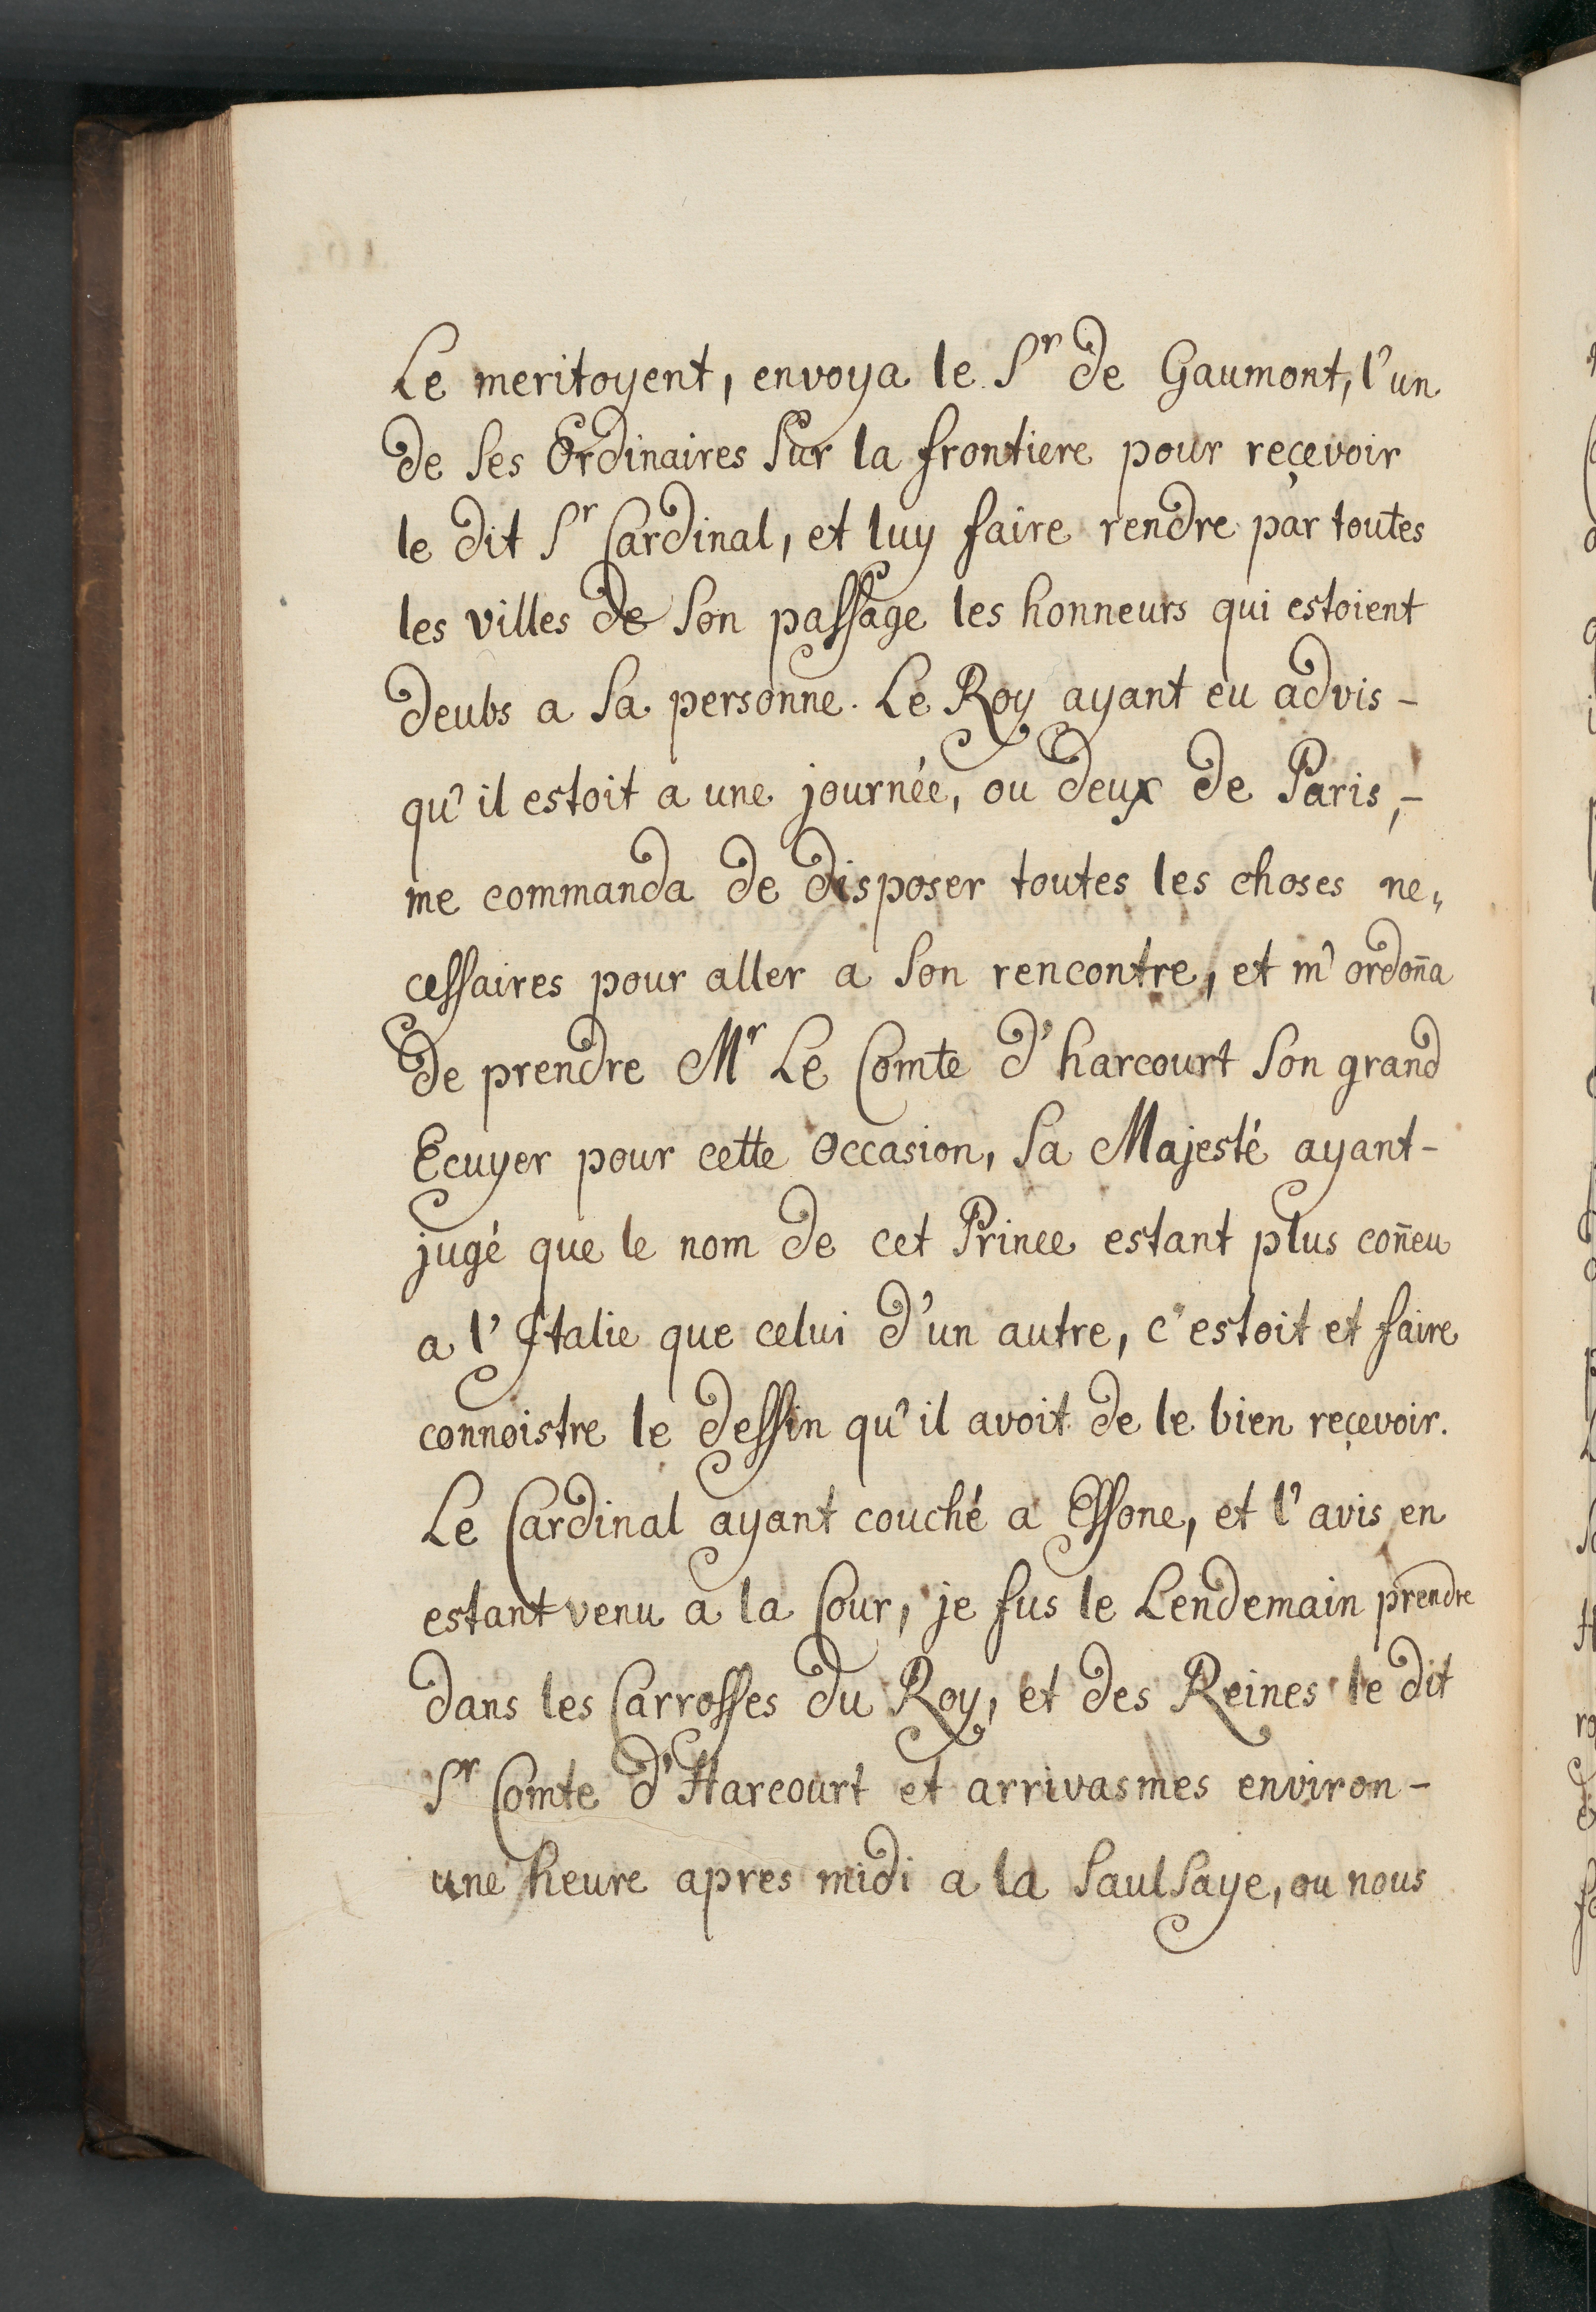 Le meritoyent, envoya le Sr de Gaumont, l'un
de ses Ordinaires sur la frontiere pour reçevoir
le dit Sr Cardinal, et luy faire rendre par toutes
les villes de son passage les honneurs qui estoient
deubs a sa personne. Le Roy ayant eu advis -
qu'il estoit a une journée, ou deux de Paris, -
me commanda de disposer toutes les choses ne„
cessaires pour aller a son rencontre, et m'ordoña
de prendre Mr Le Comte d'harcourt son grand
Ecuyer pour cette Occasion, sa Majesté ayant -
jugé que le nom de cet Prince estant plus coñeu
a l'Italie que celui d'un autre, c'estoit et faire
connoistre le dessin qu'il avoit de le bien reçevoir.
Le Cardinal ayant couché a Essone, et l'avis en
estant venu a la Cour, je fus le Lendemain prendre
dans les Carrosses du Roy, et des Reines le dit
Sr Comte d'Harcourt et arrivasmes environ -
une heure apres midi a la Saulsaye, ou nous